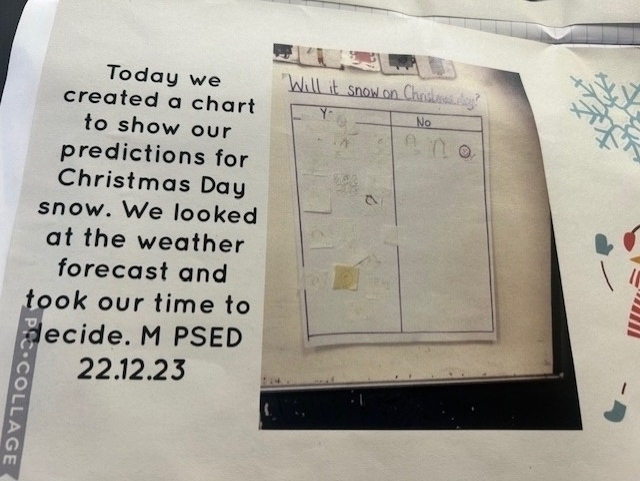 Today we
created a chart
to show our
predictions for
Christmas Day
snow. We looked
at the weather
forecast and
took our time to
decide. M PSED
22.12.23
PIC•COLLAGE
"Will it snow on Christmas day?
No